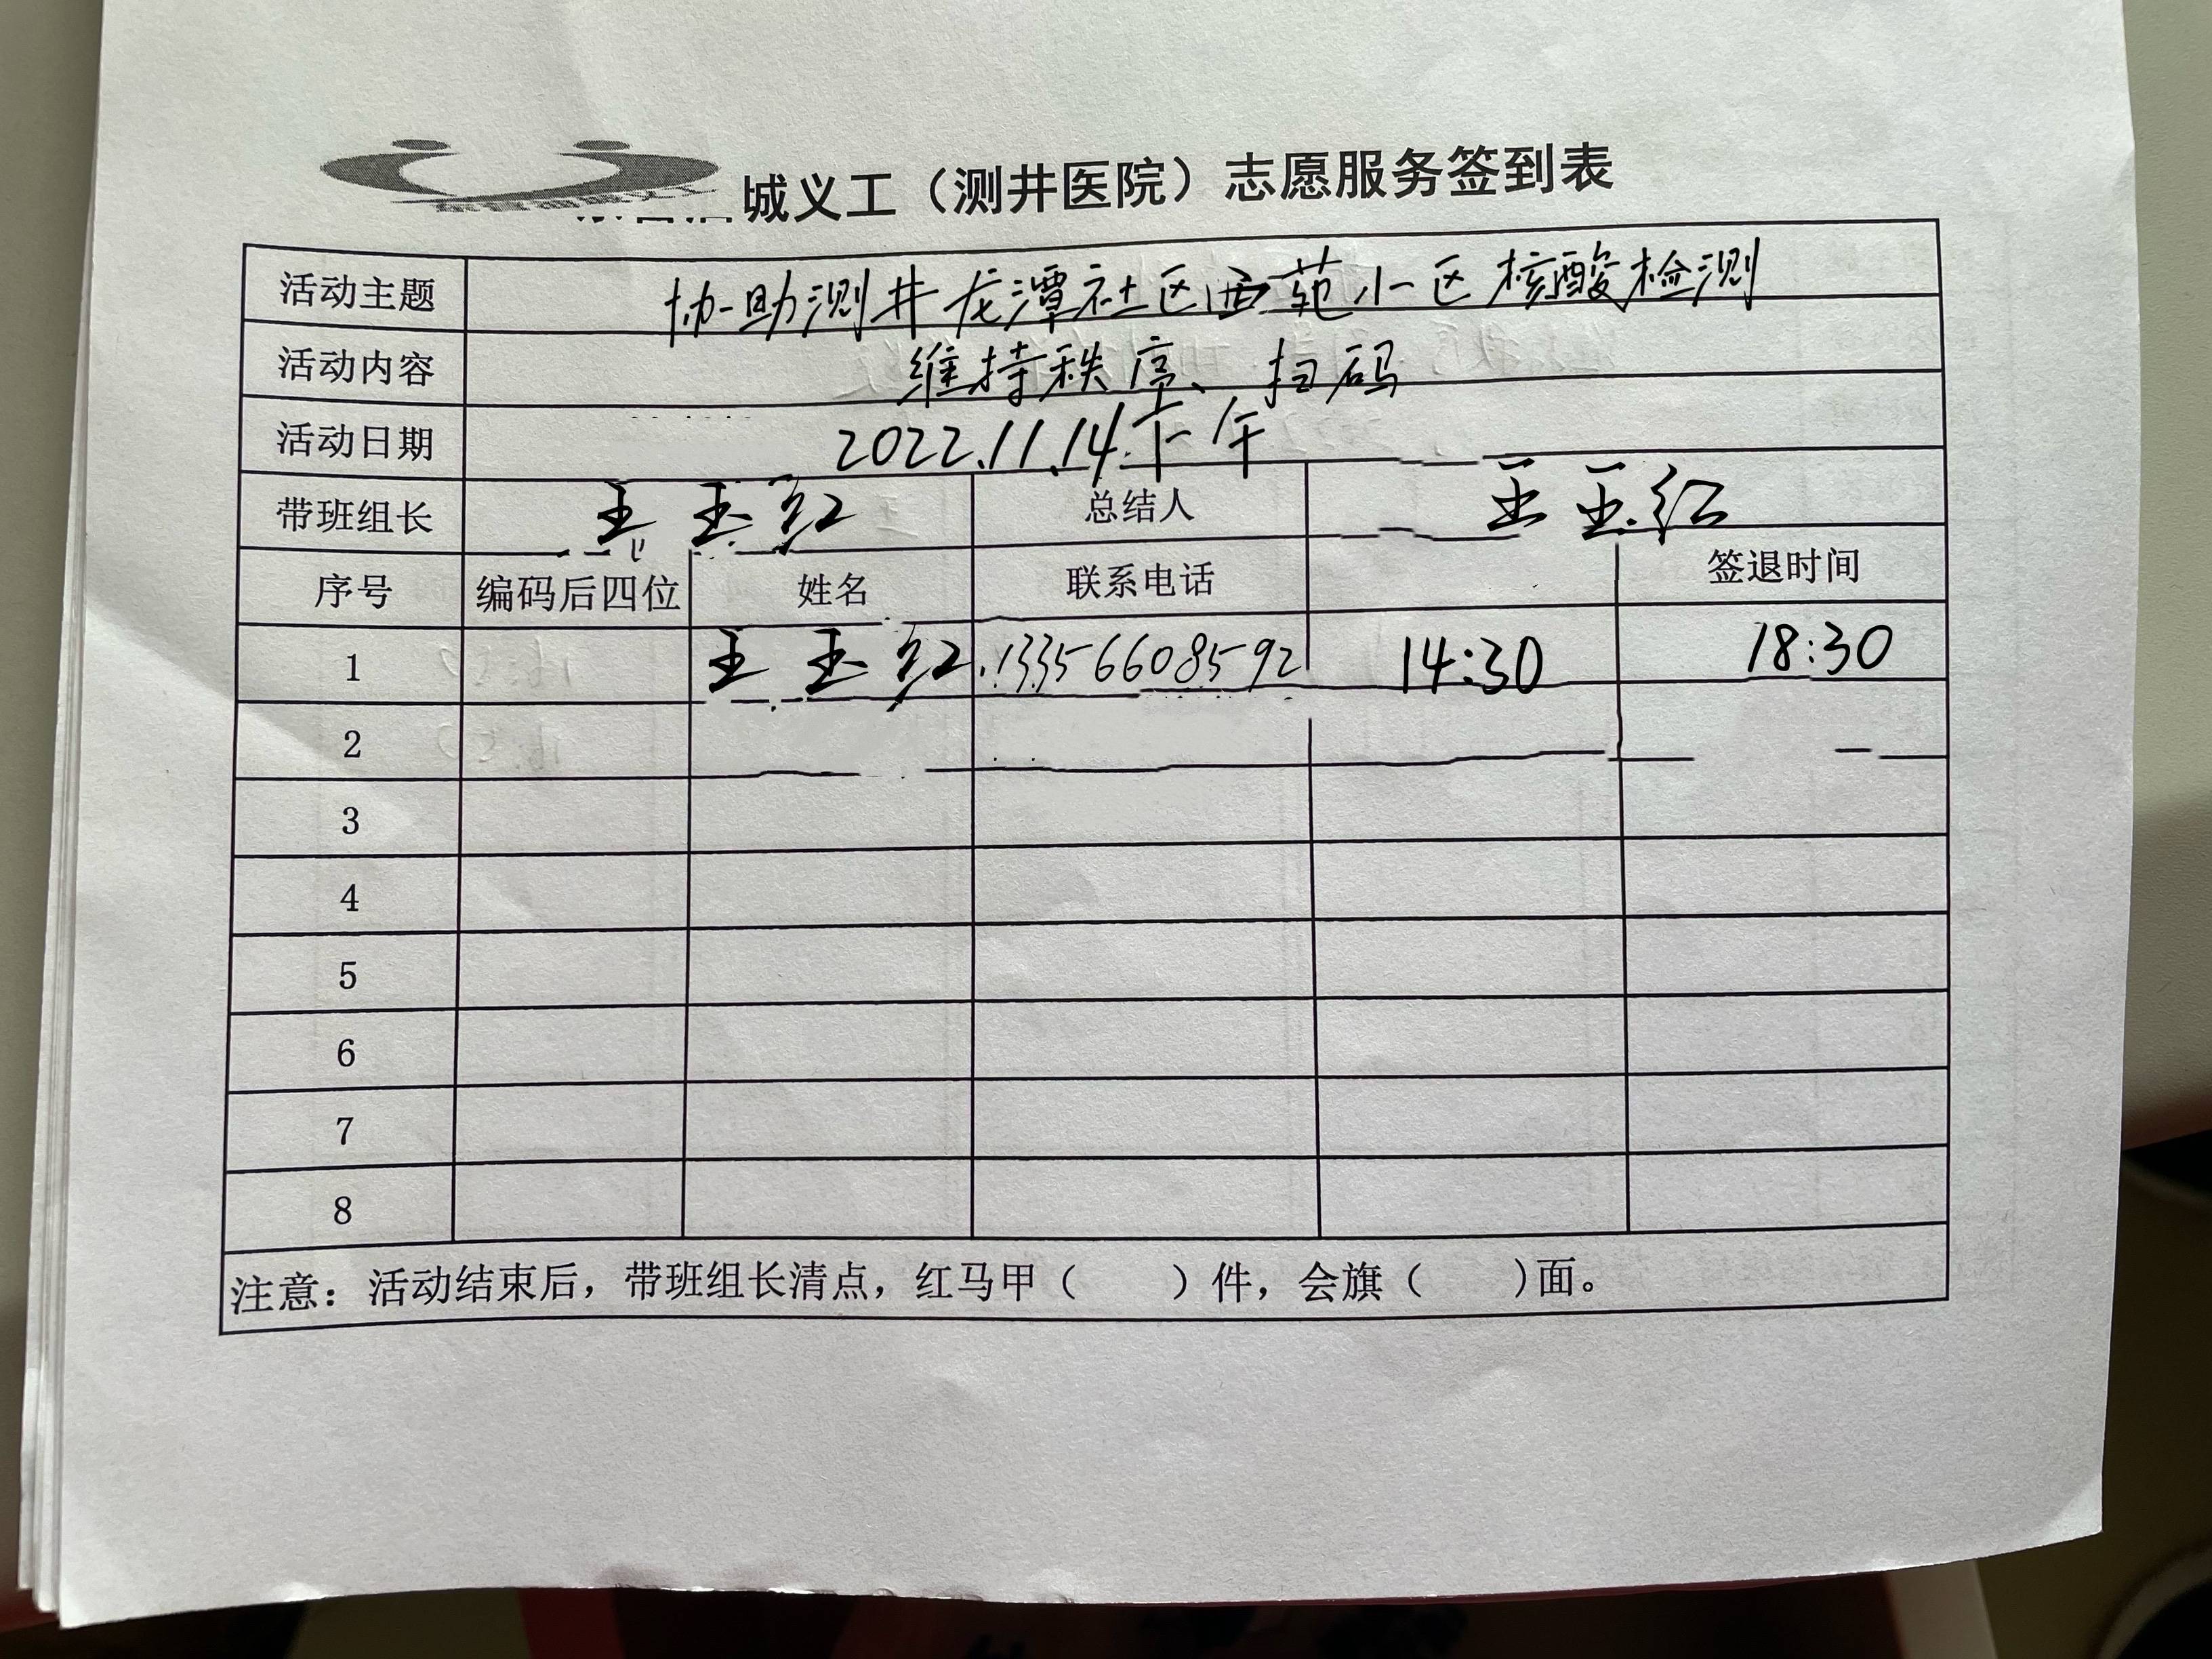 城义工（测井医院）志愿服务签到表
活动主题 协助测井龙潭社区西苑小区核酸检测
活动内容 维持秩序、扫码
活动日期 2022.11.14.下午
带班组长 王玉红 总结人 王玉红
序号 编码后四位 姓名 联系电话 签退时间
1 王玉红 13356608592 14:30 18:30
2
3
4
5
6
7
8
注意：活动结束后，带班组长清点，红马甲（ ）件，会旗（ ）面。